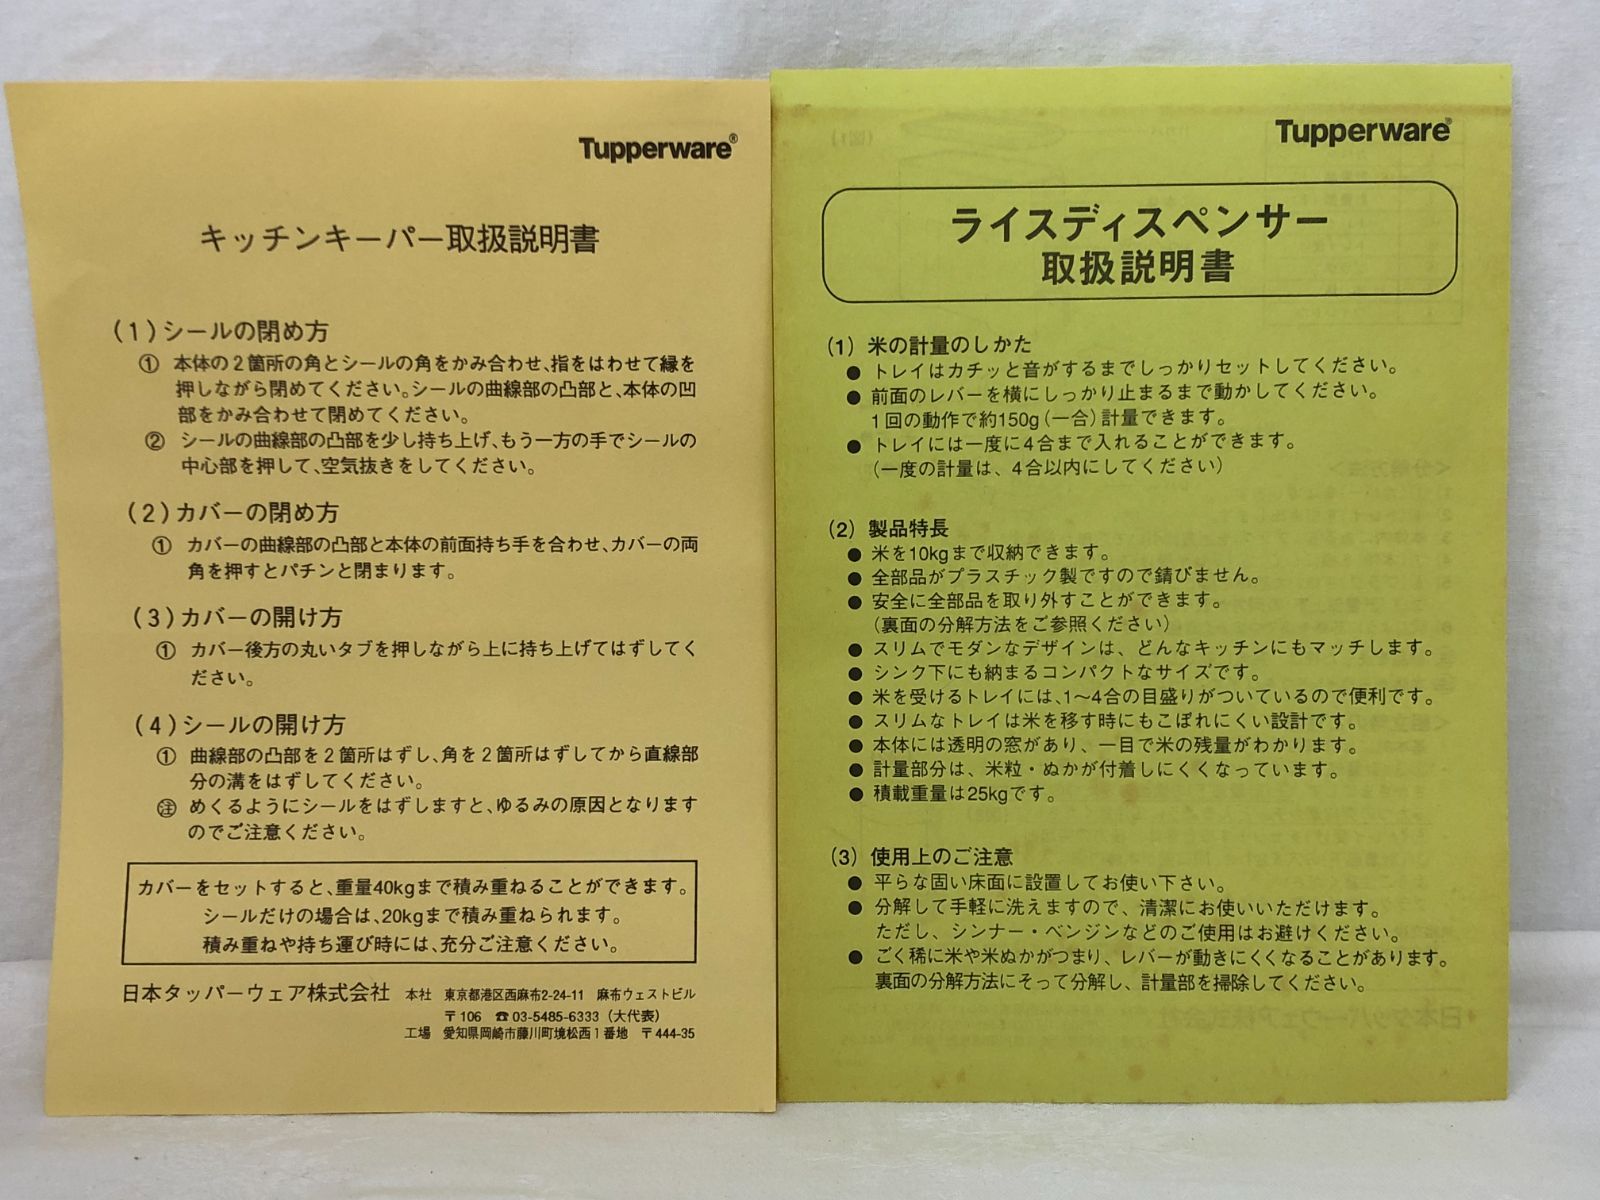 Tupperware®
キッチンキーパー取扱説明書
(1)シールの閉め方
① 本体の2箇所の角とシールの角をかみ合わせ、指をはわせて縁を
押しながら閉めてください。シールの曲線部の凸部と、本体の凹
部をかみ合わせて閉めてください。
② シールの曲線部の凸部を少し持ち上げ、もう一方の手でシールの
中心部を押して、空気抜きをしてください。
(2)カバーの閉め方
① カバーの曲線部の凸部と本体の前面持ち手を合わせ、カバーの両
角を押すとパチンと閉まります。
(3)カバーの開け方
① カバー後方の丸いタブを押しながら上に持ち上げてはずしてく
ださい。
(4)シールの開け方
① 曲線部の凸部を2箇所はずし、角を2箇所はずしてから直線部
分の溝をはずしてください。
㊟ めくるようにシールをはずしますと、ゆるみの原因となります
のでご注意ください。
カバーをセットすると、重量40kgまで積み重ねることができます。
シールだけの場合は、20kgまで積み重ねられます。
積み重ねや持ち運び時には、充分ご注意ください。
日本タッパーウェア株式会社 本社 東京都港区西麻布2-24-11 麻布ウェストビル
〒106 ☎03-5485-6333(大代表)
工場 愛知県岡崎市藤川町境松西1番地 〒444-35
Tupperware®
ライスディスペンサー
取扱説明書
(1) 米の計量のしかた
● トレイはカチッと音がするまでしっかりセットしてください。
● 前面のレバーを横にしっかり止まるまで動かしてください。
1回の動作で約150g(一合)計量できます。
● トレイには一度に4合まで入れることができます。
(一度の計量は、4合以内にしてください)
(2) 製品特長
● 米を10kgまで収納できます。
● 全部品がプラスチック製ですので錆びません。
● 安全に全部品を取り外すことができます。
(裏面の分解方法をご参照ください)
● スリムでモダンなデザインは、どんなキッチンにもマッチします。
● シンク下にも納まるコンパクトなサイズです。
● 米を受けるトレイには、1〜4合の目盛りがついているので便利です。
● スリムなトレイは米を移す時にもこぼれにくい設計です。
● 本体には透明の窓があり、一目で米の残量がわかります。
● 計量部分は、米粒・ぬかが付着しにくくなっています。
● 積載重量は25kgです。
(3) 使用上のご注意
● 平らな固い床面に設置してお使い下さい。
● 分解して手軽に洗えますので、清潔にお使いいただけます。
ただし、シンナー・ベンジンなどのご使用はお避けください。
● ごく稀に米や米ぬかがつまり、レバーが動きにくくなることがあります。
裏面の分解方法にそって分解し、計量部を掃除してください。